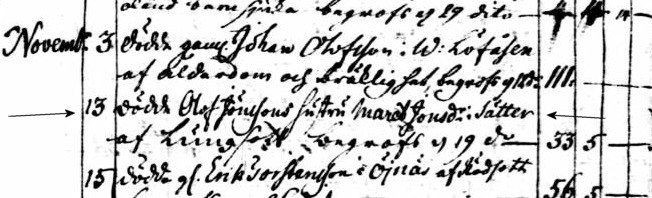 begrofs d 29 dito — 4 4 14
Novemb: 3 dödde gaml. Johan Olofsson. W: Löfåsen
af ålderdom och bräklighet, begrofs 111
13 dödde Olof Jönsons hustru Marit Jonsd:r i Sätter
af Lungsot begrofs d 19 d:o — 33 5 —
15 dödde gl. Erik Torstensson i Öjnäs af Rödsott
56 5